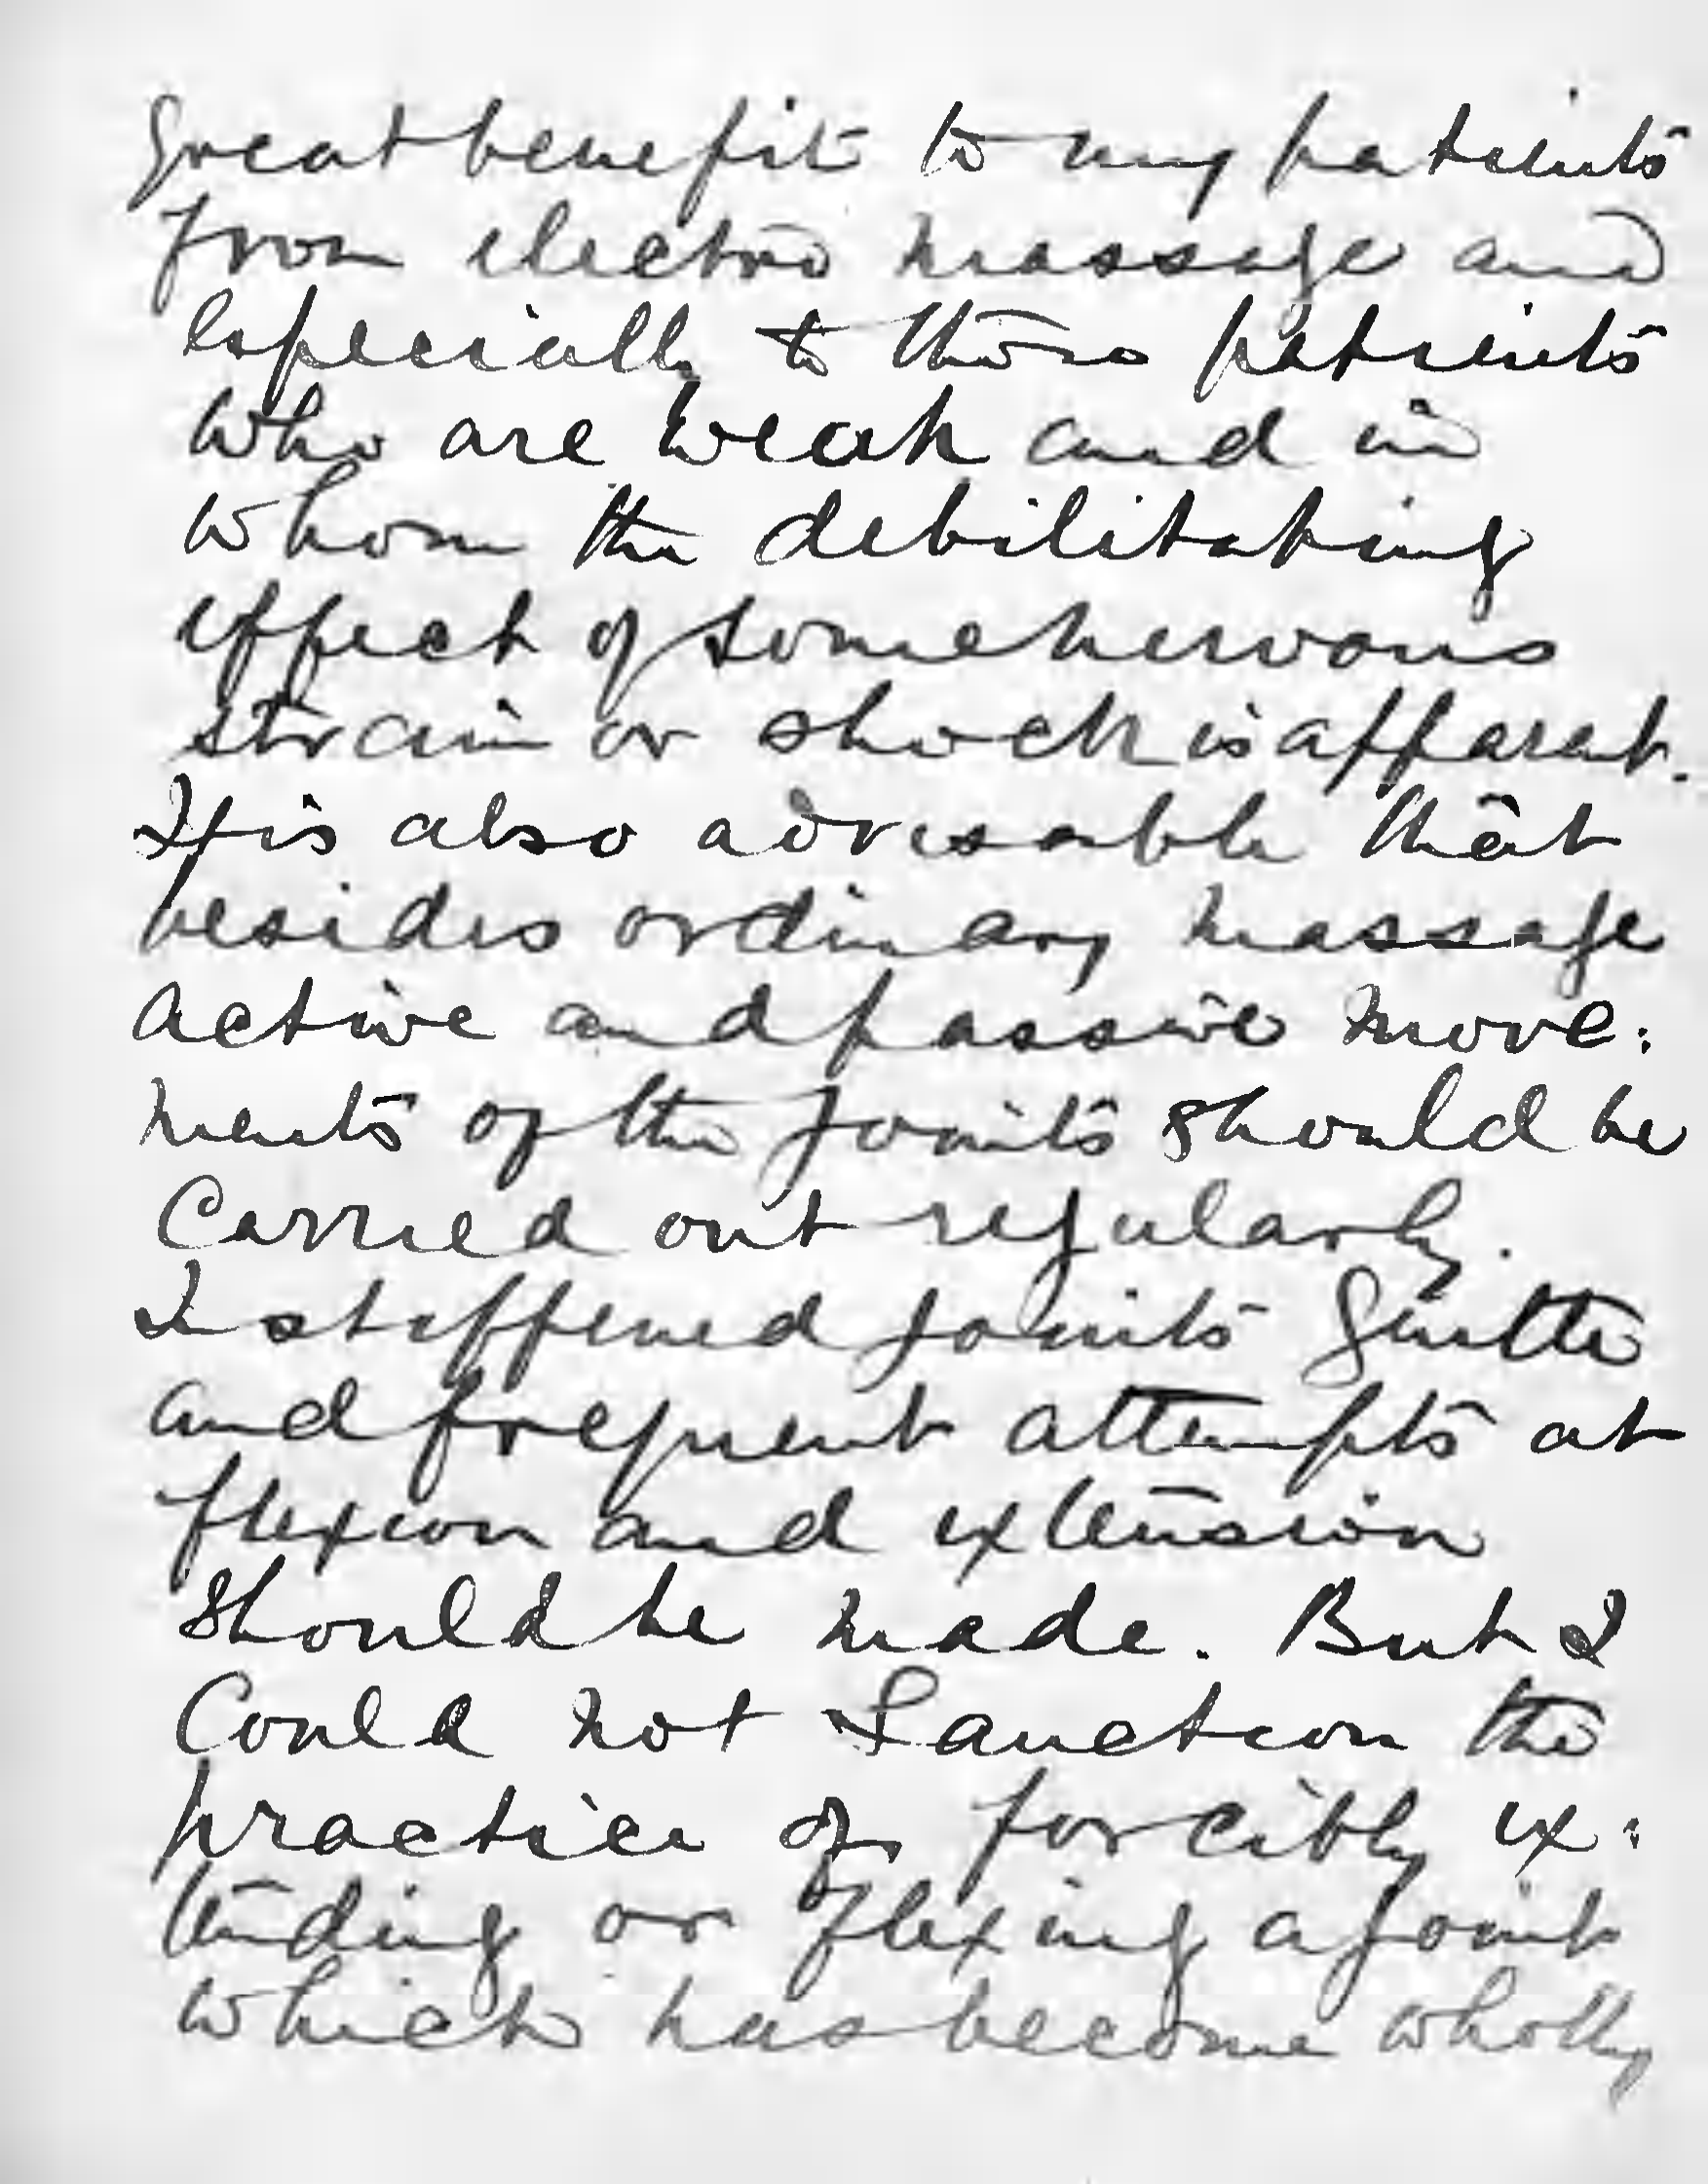 great benefit to my patients
from electro massage and
especially to those patients
who are weak and in
whom the debilitating
effect of some nervous
strain or shock is apparent.
It is also advisable that
besides ordinary massage
active and passive move:
ments of the joints should be
Carried out regularly.
In stiffened joints gentle
and frequent attempts at
flexion and extension
should be made. But I
Could not Sanction the
practice of forcibly ex:
tending or flexing a joint
which has become wholly